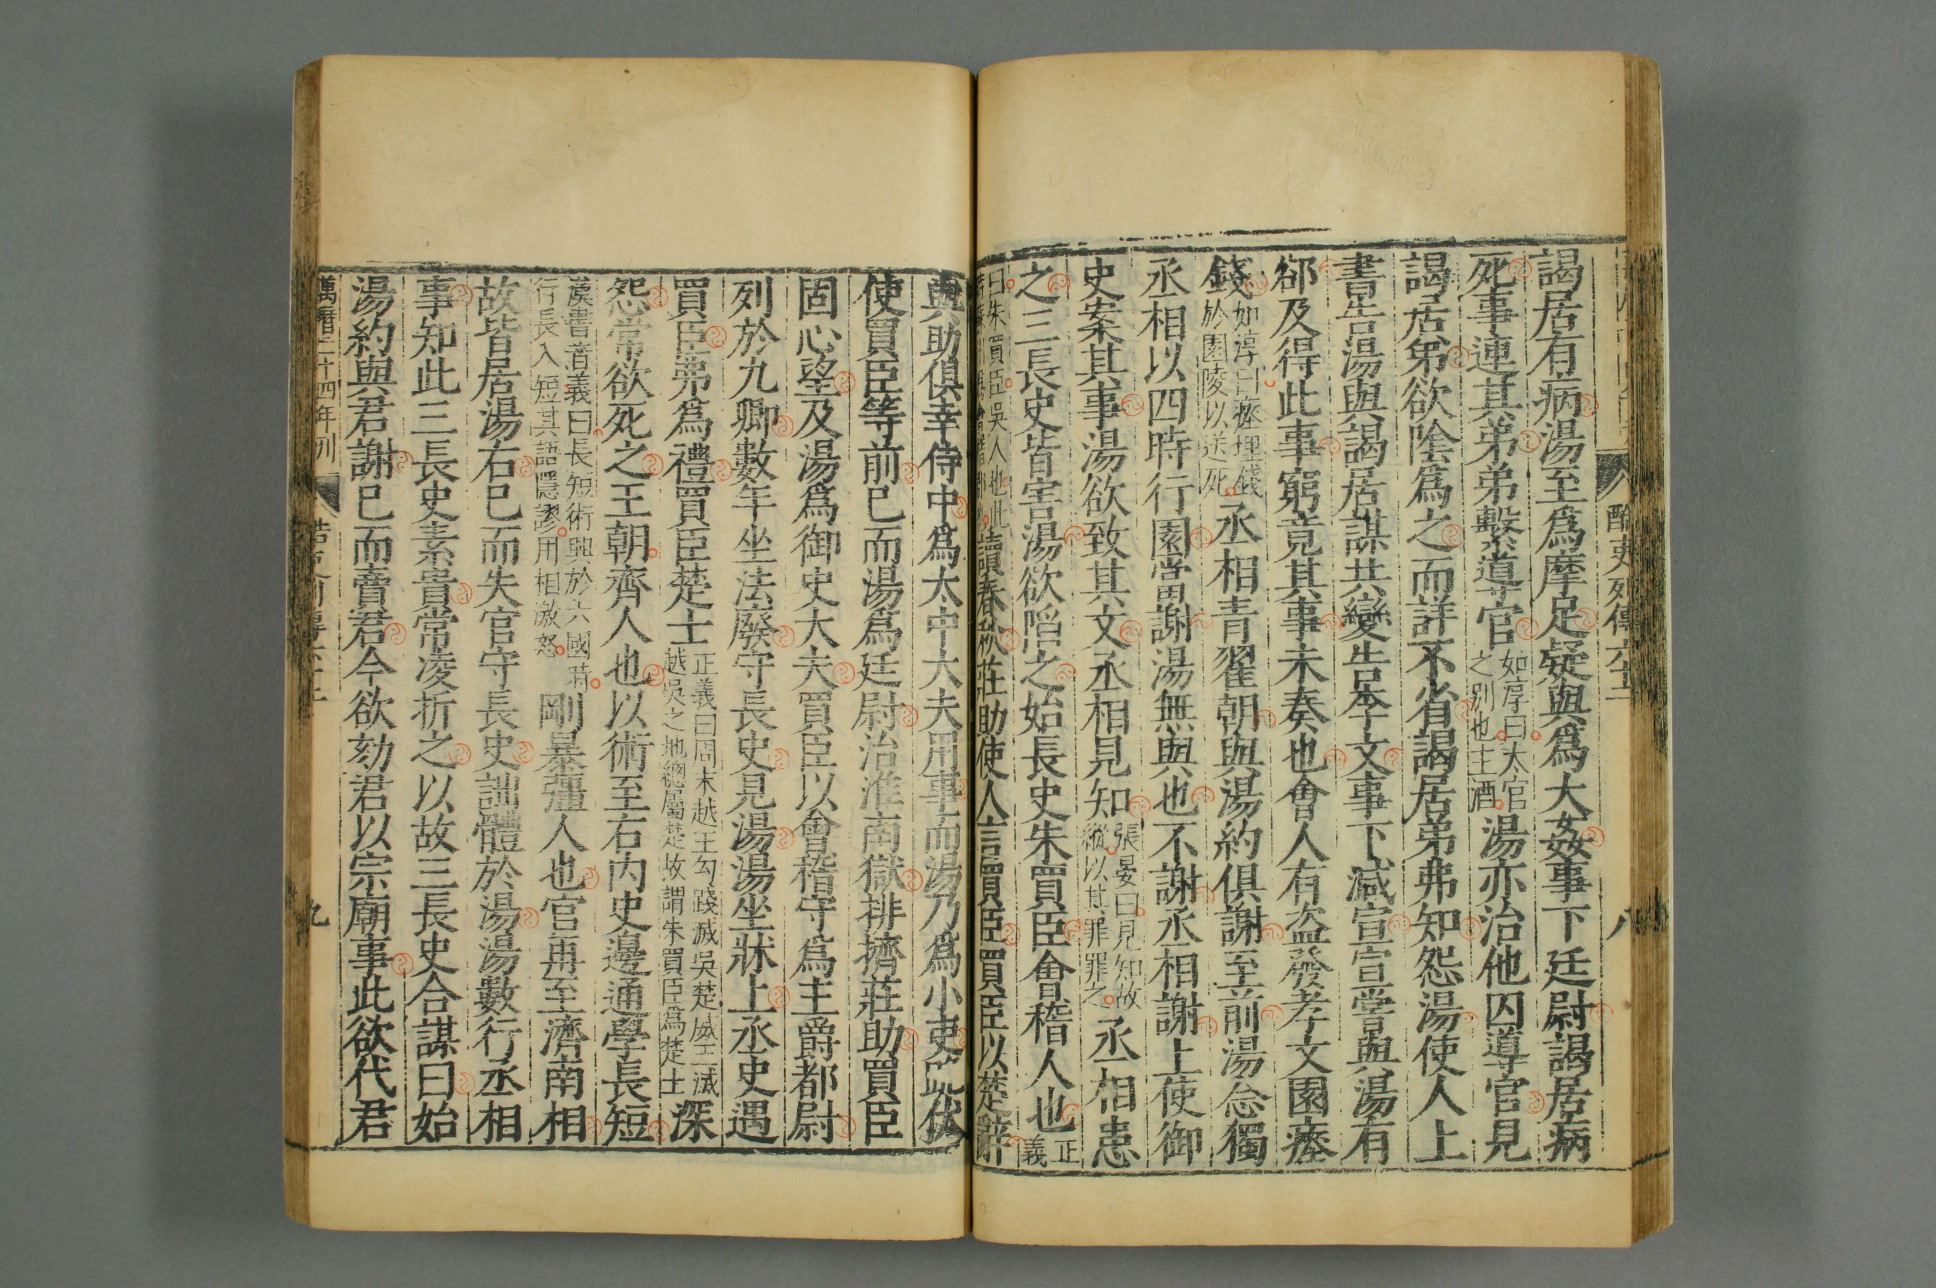 酷吏列傳六十二
八
謁居有病湯至爲摩足疑與爲大姦事下廷尉謁居病
死事連其弟弟繫導官如淳曰太官之別也主酒湯亦治他囚導官見
謁居弟欲陰爲之而詳不省謁居弟弗知怨湯使人上
書告湯與謁居謀共變告李文事下減宣宣嘗與湯有
郤及得此事窮竟其事未奏也會人有盜發孝文園瘞
錢如淳曰瘞埋錢於園陵以送死丞相青翟朝與湯約俱謝至前湯念獨
丞相以四時行園當謝湯無與也不謝丞相謝上使御
史案其事湯欲致其文丞相見知張晏曰見知故縱以其罪罪之丞相患
之三長史皆害湯欲陷之始長史朱買臣會稽人也正義
曰朱買臣吳人也此讀春秋莊助使人言買臣買臣以楚辭
與助俱幸侍中爲太中大夫用事而湯乃爲小吏跪伏
使買臣等前已而湯爲廷尉治淮南獄排擠莊助買臣
固心望及湯爲御史大夫買臣以會稽守爲主爵都尉
列於九卿數年坐法廢守長史見湯湯坐牀上丞史遇
買臣弗爲禮買臣楚士正義曰周末越王勾踐滅吳楚威王滅越吳之地總屬楚故謂朱買臣爲楚士深
怨常欲死之王朝齊人也以術至右內史邊通學長短
漢書音義曰長短術興於六國時行長入短其語隱謬用相激怒剛暴彊人也官再至濟南相
故皆居湯右已而失官守長史詘體於湯湯數行丞相
事知此三長史素貴常凌折之以故三長史合謀曰始
湯約與君謝已而賣君今欲劾君以宗廟事此欲代君
萬曆二十四年刊
九